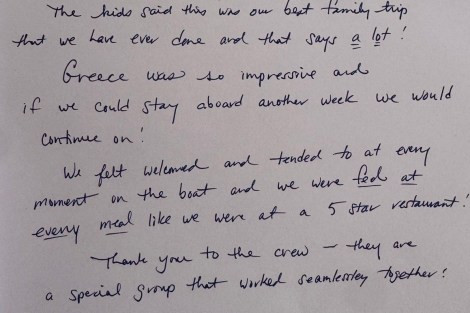 The kids said this was our best family trip
that we have ever done and that says a lot!
Greece was so impressive and
if we could stay aboard another week we would
continue on!
We felt welcomed and tended to at every
moment on the boat and we were fed at
every meal like we were at a 5 star restaurant!
Thank you to the crew – they are
a special group that worked seamlessley together!